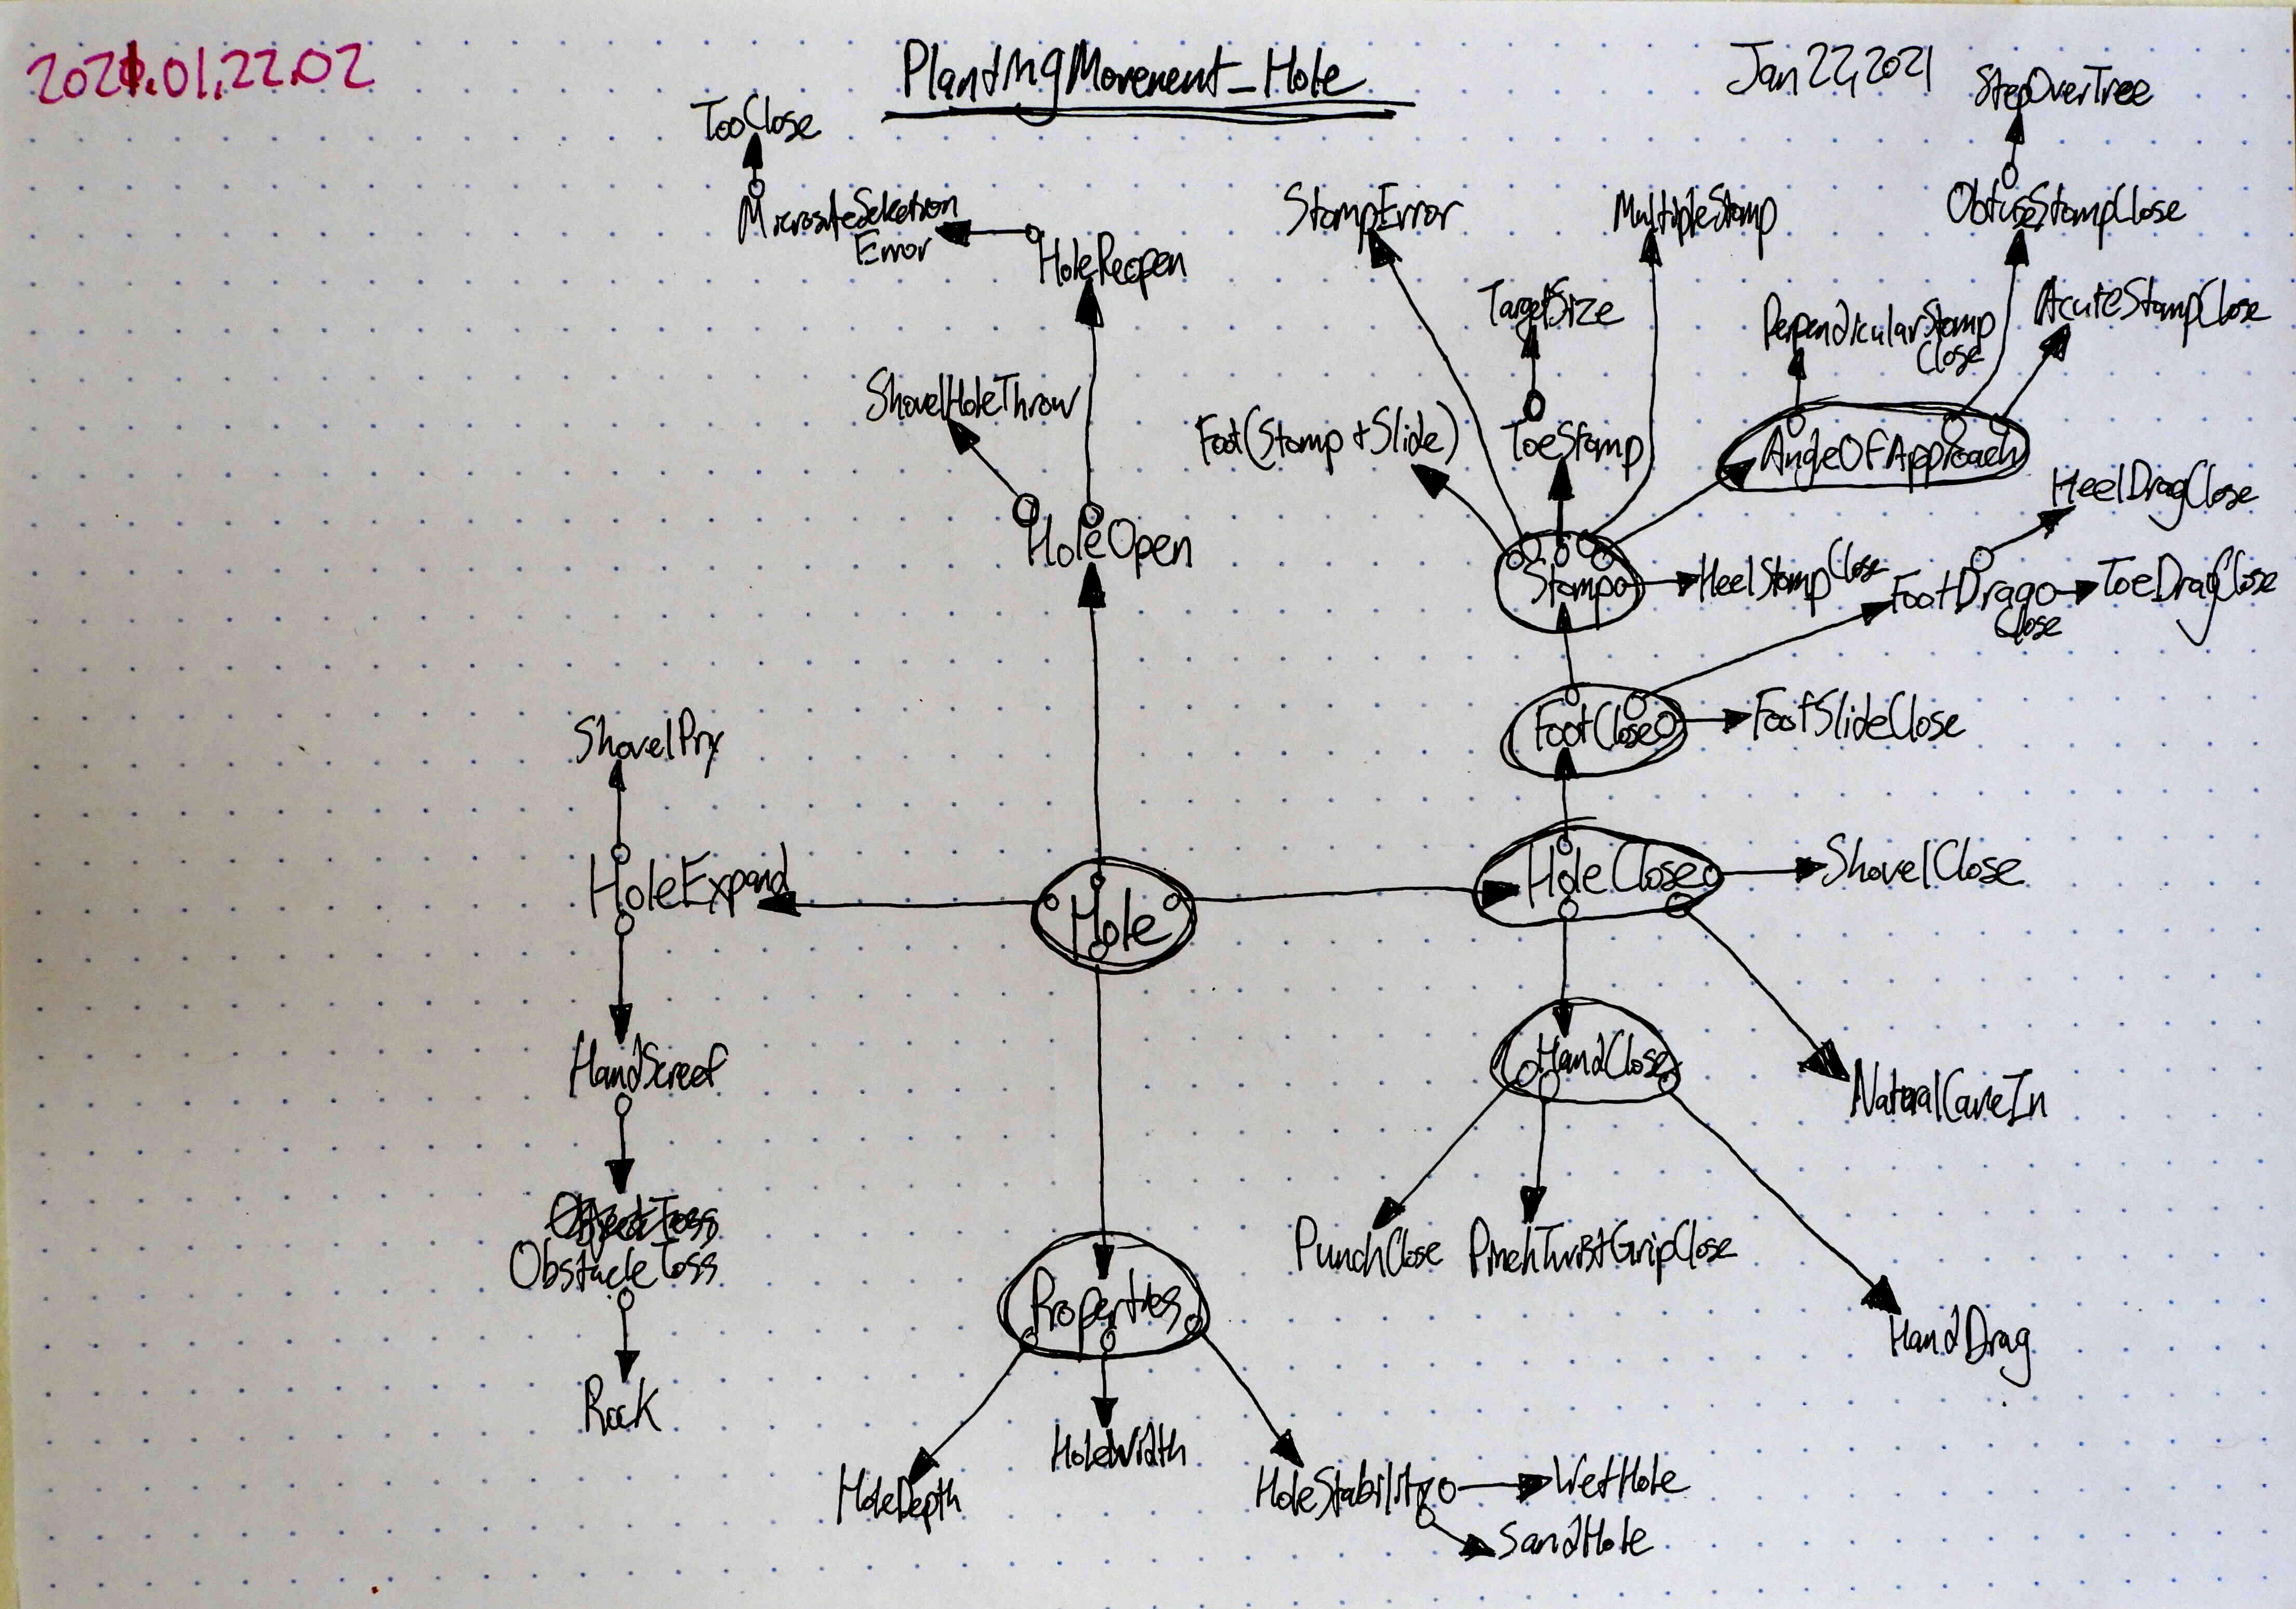 2021.01.22.02
PlantingMovement_Hole
Jan 22, 2021
StepOverTree
TooClose
MicrositeSelection
Error
HoleReopen
StompError
MultipleStomp
ObtuseStompClose
TargetSize
PerpendicularStomp
Close
AcuteStompClose
ShovelHoleThrow
Foot(Stomp+Slide)
ToeStomp
AngleOfApproach
HeelDragClose
HoleOpen
Stomp
HeelStompClose
FootDrag
Close
ToeDragClose
ShovelPry
FootClose
FootSlideClose
HoleExpand
Hole
HoleClose
ShovelClose
HandScreef
HandClose
NaturalCaveIn
ObjectToss
ObstacleToss
PunchClose
PinchTwistGripClose
Properties
HandDrag
Rock
HoleDepth
HoleWidth
HoleStability
WetHole
SandHole